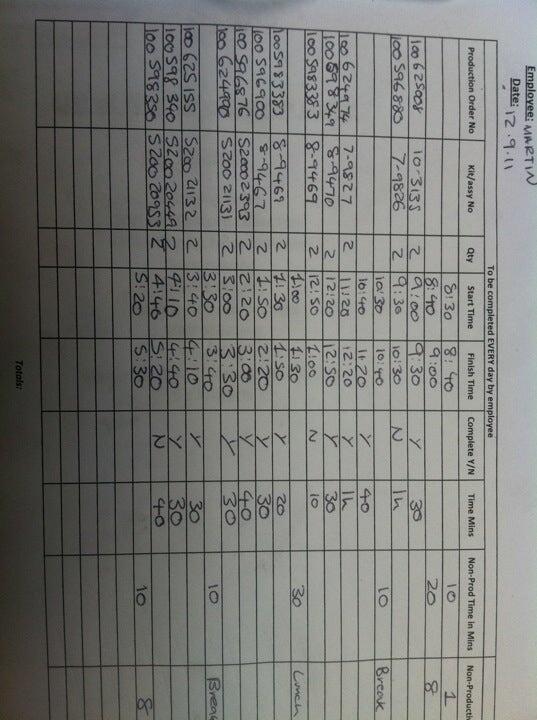 Employee: MARTIN
Date: 12.9.11
To be completed EVERY day by employee
Production Order No Kit/assy No Qty Start Time Finish Time Complete Y/N Time Mins Non-Prod Time in Mins Non-Producti
8:30 8:40 10 1
8:40 9:00 20 8
100 625008 10-3135 2 9:00 9:30 Y 30
100 596880 7-9826 2 9:30 10:30 N 1h
10:30 10:40 10 Break
10:40 11:20 Y 40
100 624974 7-9827 2 11:20 12:20 Y 1h
100 598349 8-9470 2 12:20 12:50 Y 30
100 5983383 8-9469 2 12:50 1:00 N 10
1:00 1:30 30 Lunch
100 5983383 8-9469 2 1:30 1:50 Y 20
100 596900 8-9467 2 1:50 2:20 Y 30
100 596876 S2002393 2 2:20 3:00 Y 40
100 624990 S200 21131 2 3:00 3:30 Y 30
3:30 3:40 10 Break
100 625155 S200 21132 2 3:40 4:10 Y 30
100 598 340 S200 20449 2 4:10 4:40 Y 30
100 598330 S200 20953 2 4:40 5:20 N 40
5:20 5:30 10 8
Totals: